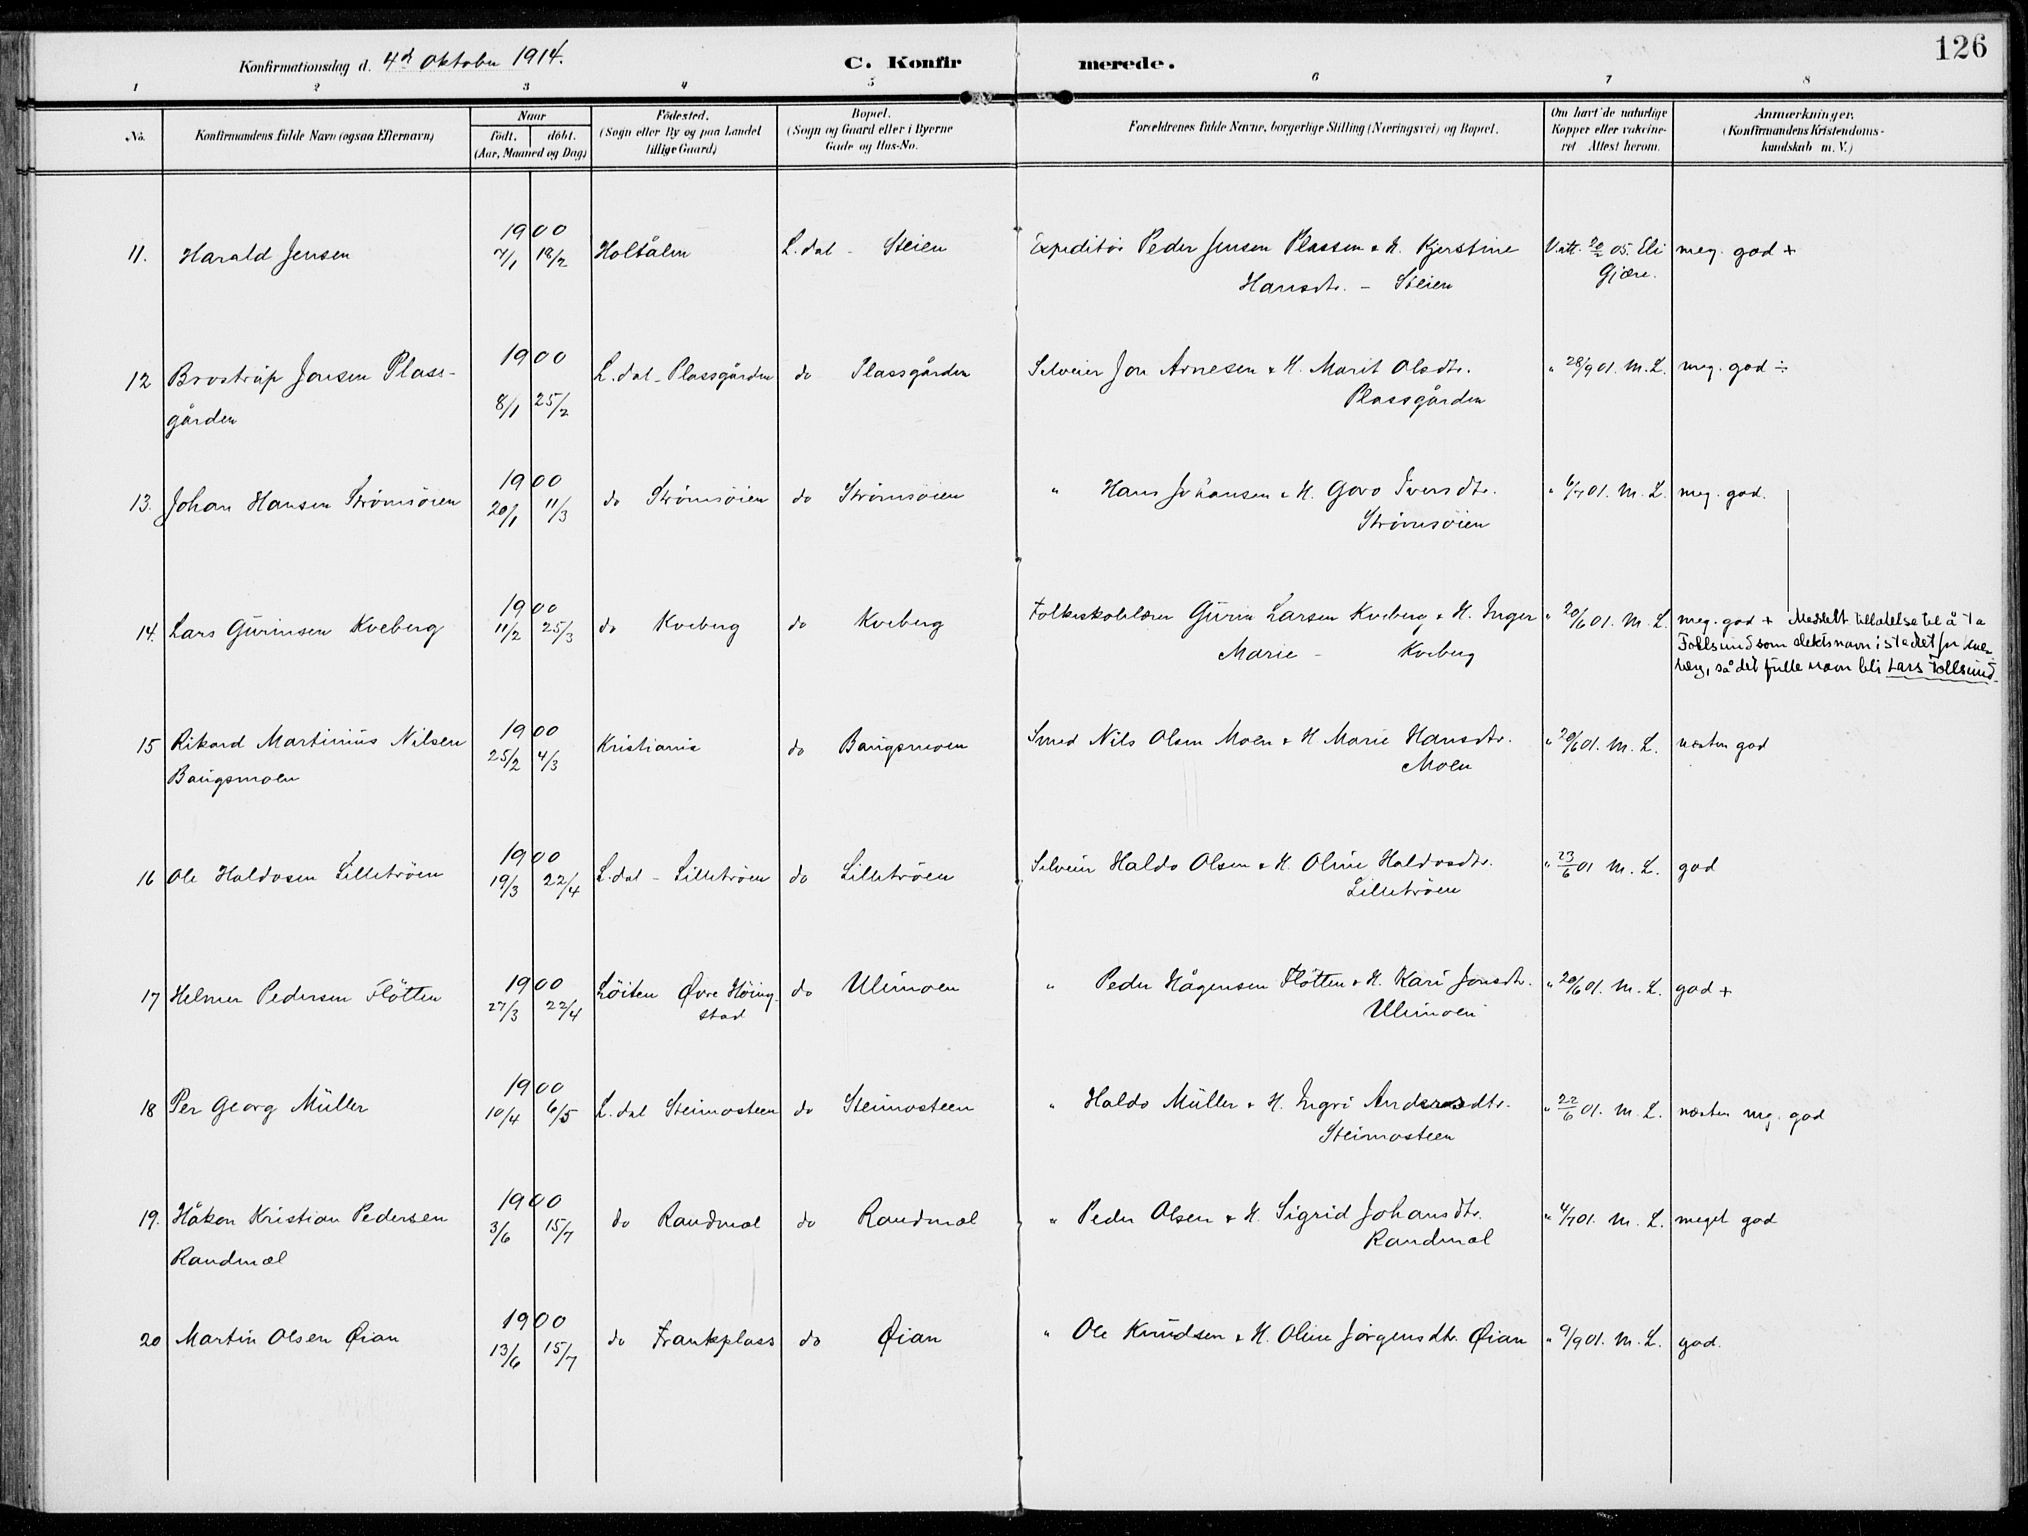 126
Konfirmationsdag d. 4de Oktober 1914. C. Konfirmerede.
1 2 3 4 5 6 7 8
No. Konfirmandens fulde Navn (ogsaa Efternavn) Naar født, døbt. (Aar, Maaned og Dag) Fødested. (Sogn eller By og paa Landet tillige Gaard) Bopæl. (Sogn og Gaard eller i Byerne Gade og Hus-No. Forældrenes fulde Navne, borgerlige Stilling (Næringsvei) og Bopæl. Om havt de naturlige Kopper eller vakcineret Attest herom. Anmærkninger. (Konfirmandens Kristendomskundskab m. V.)
1900
11. Harald Jensen 7/1 18/2 Holtålen L.dal - Steien Expeditør Peder Jensen Plassen & H. Kjerstine V.att. 05. Eli meg. god +
Hansdtr. - Steien Gjære.
1900
12 Brostrup Jonsen Plass- L.dal - Plassgården do Plassgården Selveier Jon Arnesen & H. Marit Olsdtr. " 28/9 01. M. L. meg. god ÷
gården 8/1 25/2 Plassgården
1900
13. Johan Hansen Strømsøien 20/1 11/3 do Strømsøien do Strømsøien " Hans Johansen & H. Goro Iversdtr. " 6/7 01. M. L. meg. god.
Strømsøien
1900
14. Lars Gurinsen Kveberg 11/2 25/3 do Kveberg do Kveberg Folkeskolelærer Gurin Larsen Kveberg & H. Inger " 20/6 01. M. L. meg. god + Meddelt tillatelse til å ta
Marie - Kveberg Follsund som slektsnavn i stedet for Kve-
berg, så det fulle navn bli Lars Follsund.
1900
15 Rikard Martinius Nilsen 25/2 4/3 Kristiania do Baugsmoen Smed Nils Olsen Moen & H Marie Hansdtr. " 20/6 01. M. L. næsten god
Baugsmoen Moen
1900
16 Ole Haldosen Lilletrøen 19/3 22/4 L.dal - Lilletrøen do Lilletrøen Selveier Haldo Olsen & H. Oline Haldosdtr. " 23/6 01 M. L. god
Lilletrøen
1900
17 Helmer Pedersen Fløtten 27/3 22/4 Løiten Øvre Høing- do Ulimoen " Peder Hågensen Fløtten & H. Kari Jonsdtr. " 20/6 01. M. L. god +
stad Ulimoen
1900
18 Per Georg Müller 10/4 6/5 L.dal Steimosteen do Steimosteen " Haldo Müller & H. Ingri Andersdtr. " 22/6 01. M. L. næsten meg. god
Steimosteen
1900
19. Håkon Kristian Pedersen 3/6 15/7 do Raudmæl do Raudmæl " Peder Olsen & H. Sigrid Johansdtr. " 4/7 01. M. L. meget god
Raudmæl Raudmæl
1900
20 Martin Olsen Øian 13/6 15/7 do Frankplass do Øian " Ole Knudsen & H. Oline Jørgensdtr. Øian " 9/9 01. M. L. god.